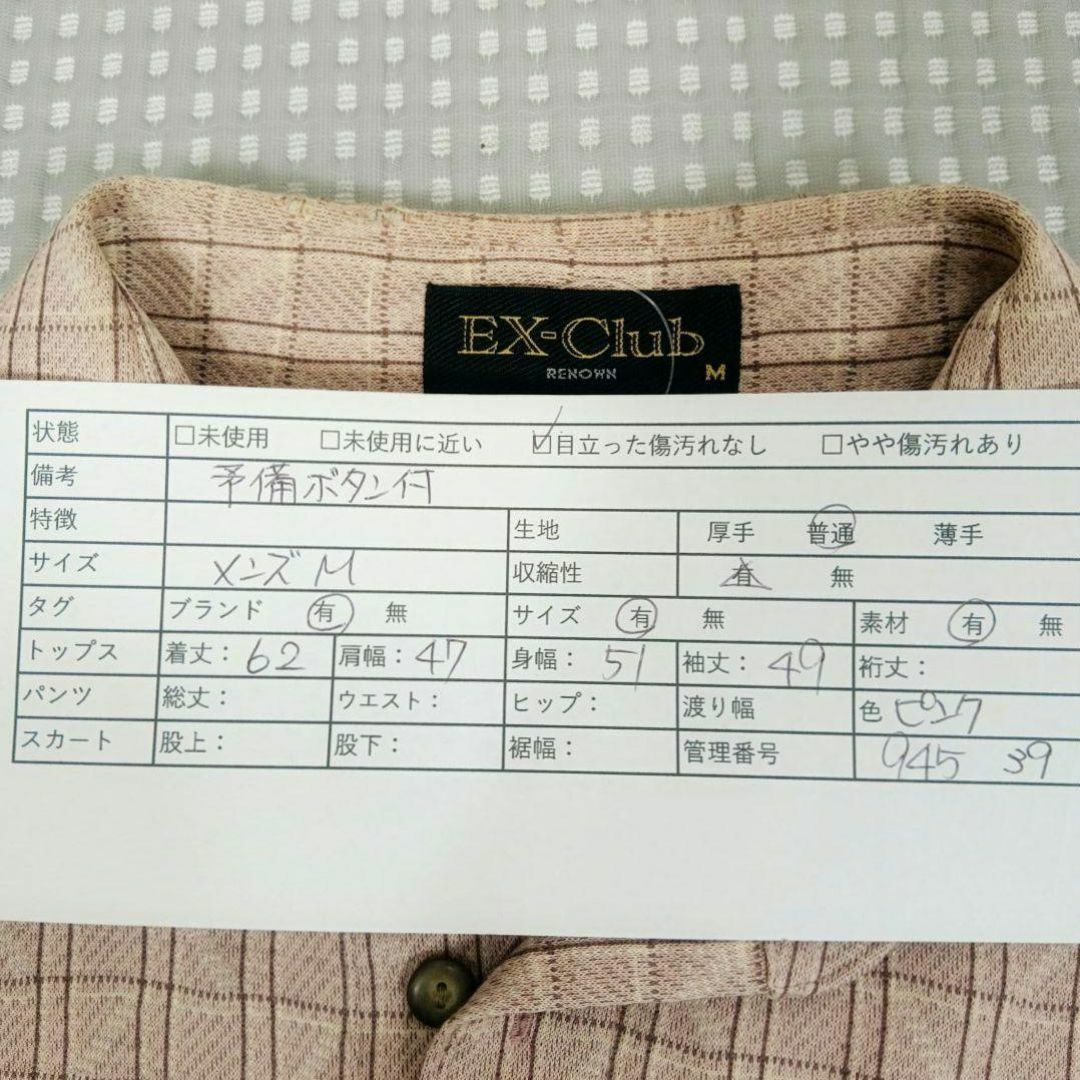 EX-Club
RENOWN M
状態 □未使用 □未使用に近い ☑目立った傷汚れなし □やや傷汚れあり
備考 予備ボタン付
特徴 生地 厚手 普通 薄手
サイズ メンズM 収縮性 有 無
タグ ブランド 有 無 サイズ 有 無 素材 有 無
トップス 着丈：62 肩幅：47 身幅：51 袖丈：49 裄丈：
パンツ 総丈： ウエスト： ヒップ： 渡り幅 色 ピンク
スカート 股上： 股下： 裾幅： 管理番号 945 39